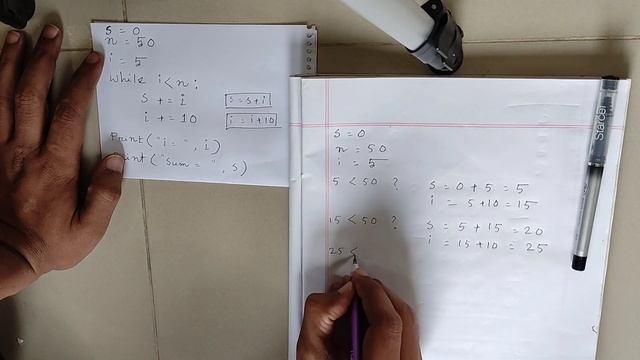 s = 0
n = 50
i = 5
while i < n :
s += i
s = s + i
i += 10
i = i + 10
Print ("i = ", i)
Print ("Sum = ", s)
s = 0
n = 50
i = 5
5 < 50 ?
s = 0 + 5 = 5
i = 5 + 10 = 15
15 < 50 ?
s = 5 + 15 = 20
i = 15 + 10 = 25
25 <